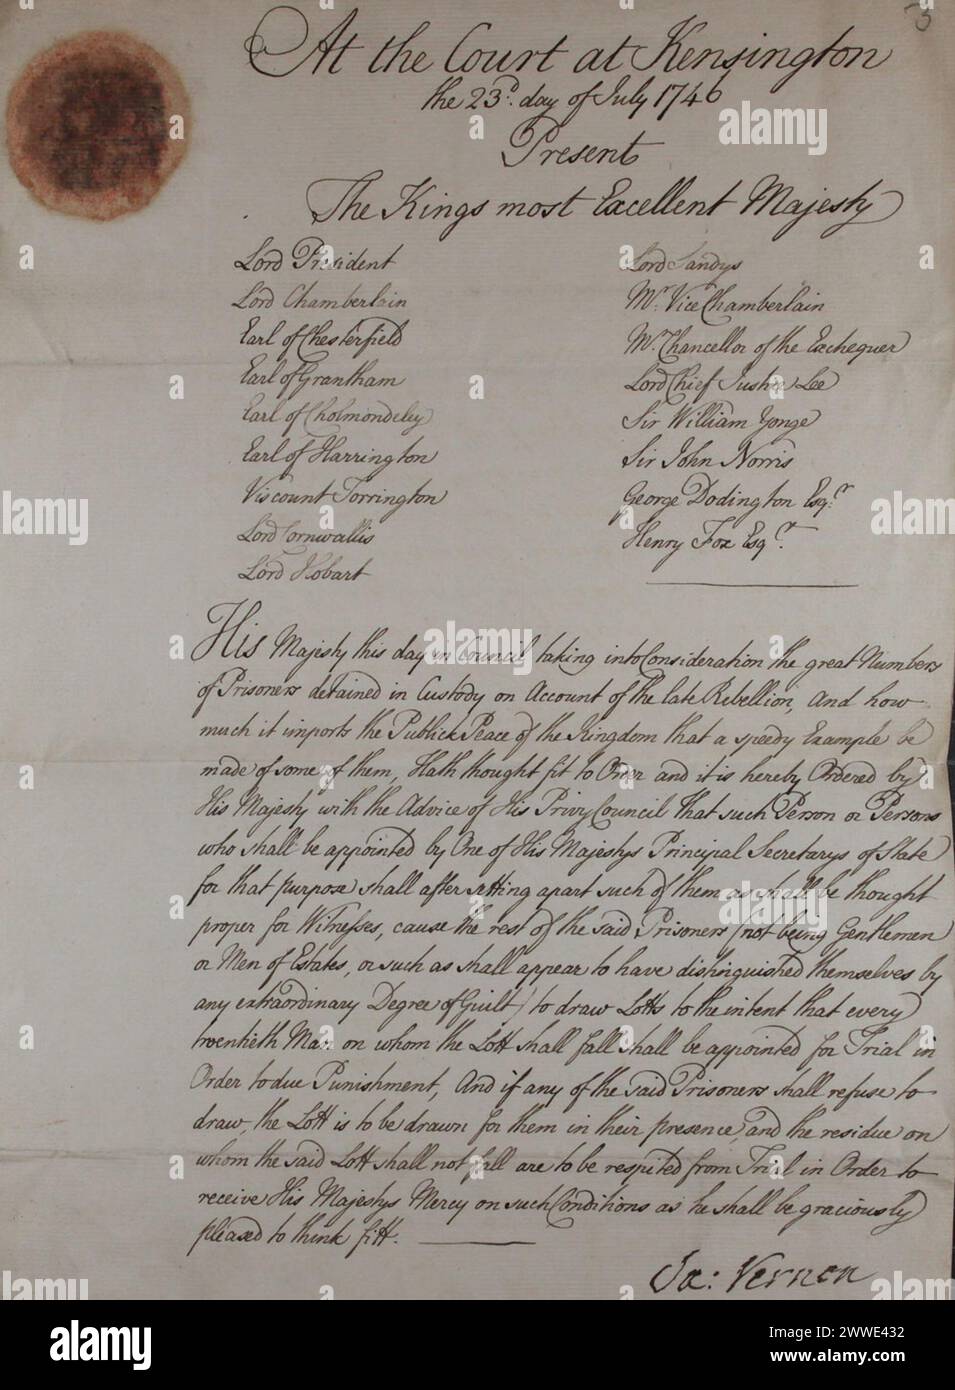 3
At the Court at Kensington
the 23d. day of July 1746
Present
The Kings most Excellent Majesty
Lord President
Lord Chamberlain
Earl of Chesterfield
Earl of Grantham
Earl of Cholmondeley
Earl of Harrington
Viscount Torrington
Lord Cornwallis
Lord Hobart
Lord Sandys
Mr. Vice Chamberlain
Mr. Chancellor of the Exchequer
Lord Chief Justice Lee
Sir William Yonge
Sir John Norris
George Dodington Esqr.
Henry Fox Esqr.
His Majesty this day in Council taking into Consideration the great Numbers
of Prisoners detained in Custody on Account of the late Rebellion, and how
much it imports the Publick Peace of the Kingdom that a speedy Example be
made of some of them, Hath thought fit to Order and it is hereby Ordered by
His Majesty with the Advice of His Privy Council that such Person or Persons
who shall be appointed by One of His Majestys Principal Secretarys of State
for that purpose shall after setting apart such of them as shall be thought
proper for Witnesses, cause the rest of the said Prisoners (not being Gentlemen
or Men of Estates, or such as shall appear to have distinguished themselves by
any extraordinary Degree of Guilt) to draw Lotts to the intent that every
twentieth Man on whom the Lott shall fall shall be appointed for Trial in
Order to due Punishment, And if any of the said Prisoners shall refuse to
draw, the Lott is to be drawn for them in their presence, and the residue on
whom the said Lott shall not fall are to be respited from Trial in Order to
receive His Majestys Mercy on such Conditions as he shall be graciously
pleased to think fitt.
Ja: Vernon
alamy
Image ID: 2WWE432
www.alamy.com